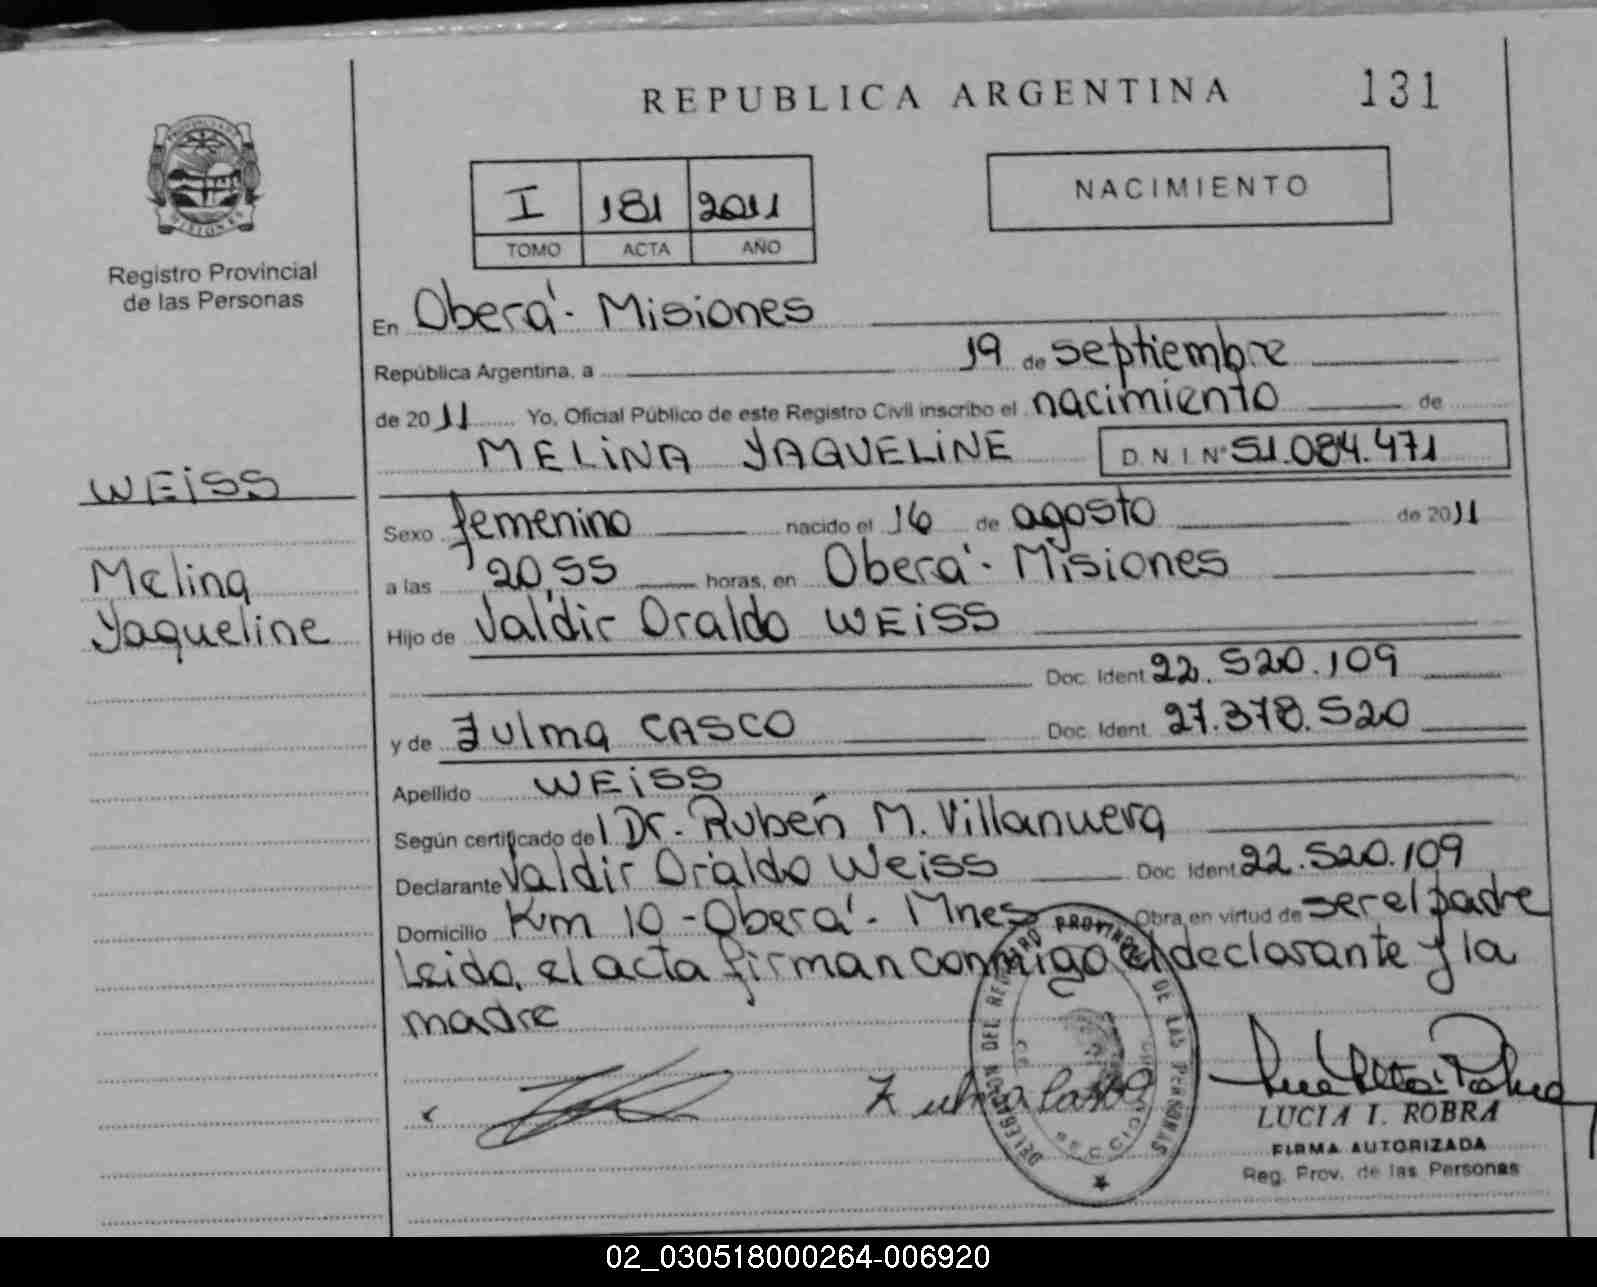 REPUBLICA ARGENTINA
131
PROVINCIA DE
MISIONES
Registro Provincial
de las Personas
I 181 2011
TOMO ACTA AÑO
NACIMIENTO
En Oberá - Misiones
República Argentina, a 19 de septiembre
de 2011 Yo, Oficial Público de este Registro Civil inscribo el nacimiento de
MELINA YAQUELINE D.N.I. Nº 51.084.471
WEISS
Melina
Yaqueline
Sexo femenino nacido el 16 de agosto de 2011
a las 20,55 horas, en Oberá - Misiones
Hijo de Valdir Oraldo WEISS
Doc. Ident. 22.520.109
y de Zulma CASCO Doc. Ident. 27.378.520
Apellido WEISS
Según certificado del Dr. Rubén M. Villanueva
Declarante Valdir Oraldo Weiss Doc. Ident. 22.520.109
Domicilio Km 10 - Oberá - Mnes Obra en virtud de ser el padre
Leida, el acta firman conmigo el declarante y la
madre
Zulma Casco
DELEGACION DEL REGISTRO PROVINCIAL DE LAS PERSONAS
LUCIA I. ROBRA
FIRMA AUTORIZADA
Reg. Prov. de las Personas
02_030518000264-006920